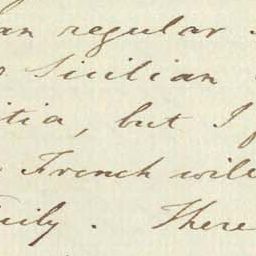 an regular
Sicilian
itia, but I
French will
icily. There